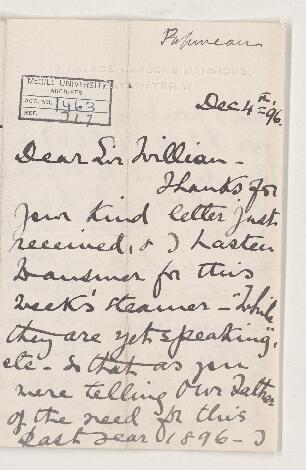 Papineau
PALACE GARDENS MANSIONS,
BAYSWATER. W.
McGILL UNIVERSITY
ARCHIVES
ACC. NO. 1463
REF. 717
Dec 4th 96.
Dear Sir William -
Thanks for
your kind letter just
received, & I hasten
to answer for this
week's steamer - "While
they are yet speaking",
etc - So that as you
were telling Our Father
of the need for this
last year 1896 - I